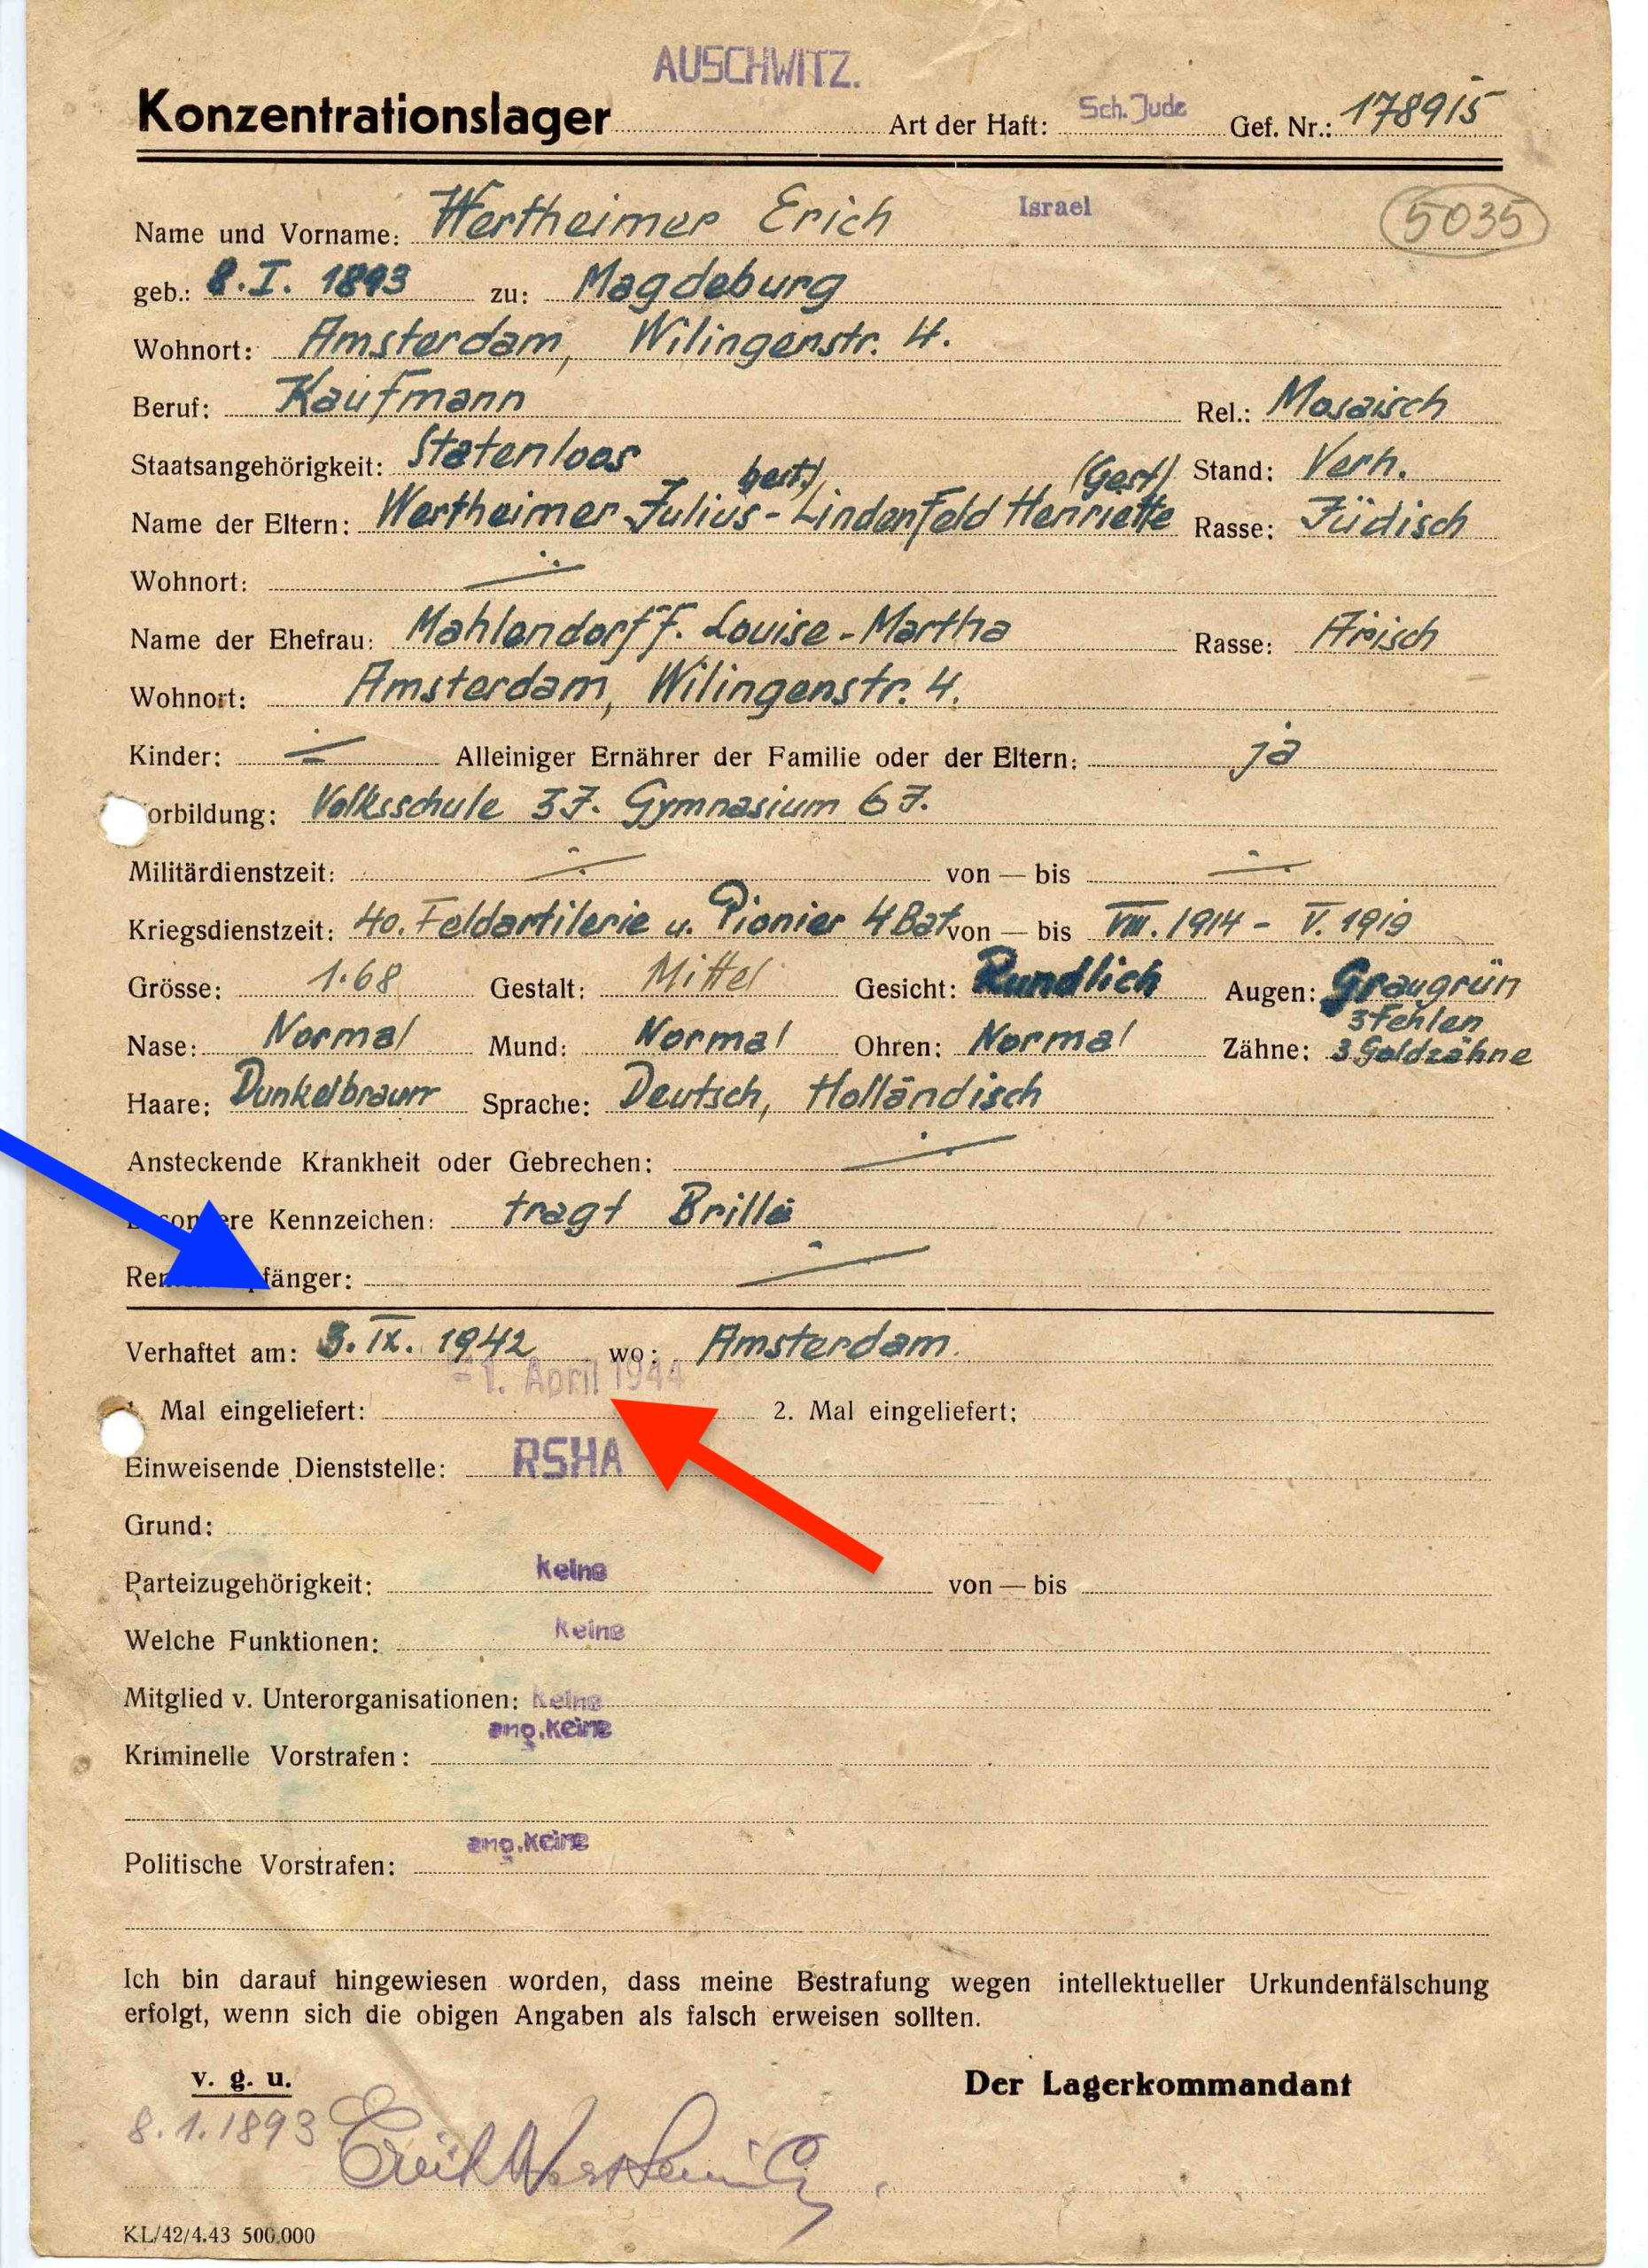 AUSCHWITZ.
Konzentrationslager Art der Haft: Sch. Jude Gef. Nr.: 178915
Name und Vorname: Wertheimer Erich Israel 5035
geb.: 8. I. 1893 zu: Magdeburg
Wohnort: Amsterdam, Wilingenstr. 4.
Beruf: Kaufmann Rel.: Mosaisch
Staatsangehörigkeit: Statenloos Stand: Verh.
Name der Eltern: Wertheimer Julius - Lindenfeld Henriette (Gest) Rasse: Jüdisch
Wohnort:
Name der Ehefrau: Mahlendorff. Louise-Martha Rasse: Arisch
Wohnort: Amsterdam, Wilingenstr. 4.
Kinder: Alleiniger Ernährer der Familie oder der Eltern: ja
orbildung: Volksschule 3J. Gymnasium 6J.
Militärdienstzeit: von — bis
Kriegsdienstzeit: 40. Feldartilerie u. Pionier 4 Bat von — bis VIII. 1914 - V. 1919
Grösse: 1.68 Gestalt: Mittel Gesicht: Rundlich Augen: Graugrün
Nase: Normal Mund: Normal Ohren: Normal Zähne: 3 Fehlen 3 Goldzähne
Haare: Dunkelbraun Sprache: Deutsch, Holländisch
Ansteckende Krankheit oder Gebrechen:
Kennzeichen: tragt Brille
fänger:
Verhaftet am: 3. IX. 1942 wo: Amsterdam.
-1. April 1944
Mal eingeliefert: 2. Mal eingeliefert:
Einweisende Dienststelle: RSHA
Grund:
Parteizugehörigkeit: Keine von — bis
Welche Funktionen: Keine
Mitglied v. Unterorganisationen: Keine
Kriminelle Vorstrafen: ang. Keine
Politische Vorstrafen: ang. Keine
Ich bin darauf hingewiesen worden, dass meine Bestrafung wegen intellektueller Urkundenfälschung
erfolgt, wenn sich die obigen Angaben als falsch erweisen sollten.
v. g. u. Der Lagerkommandant
8.1.1893 Erich Wertheimer
KL/42/4.43 500.000